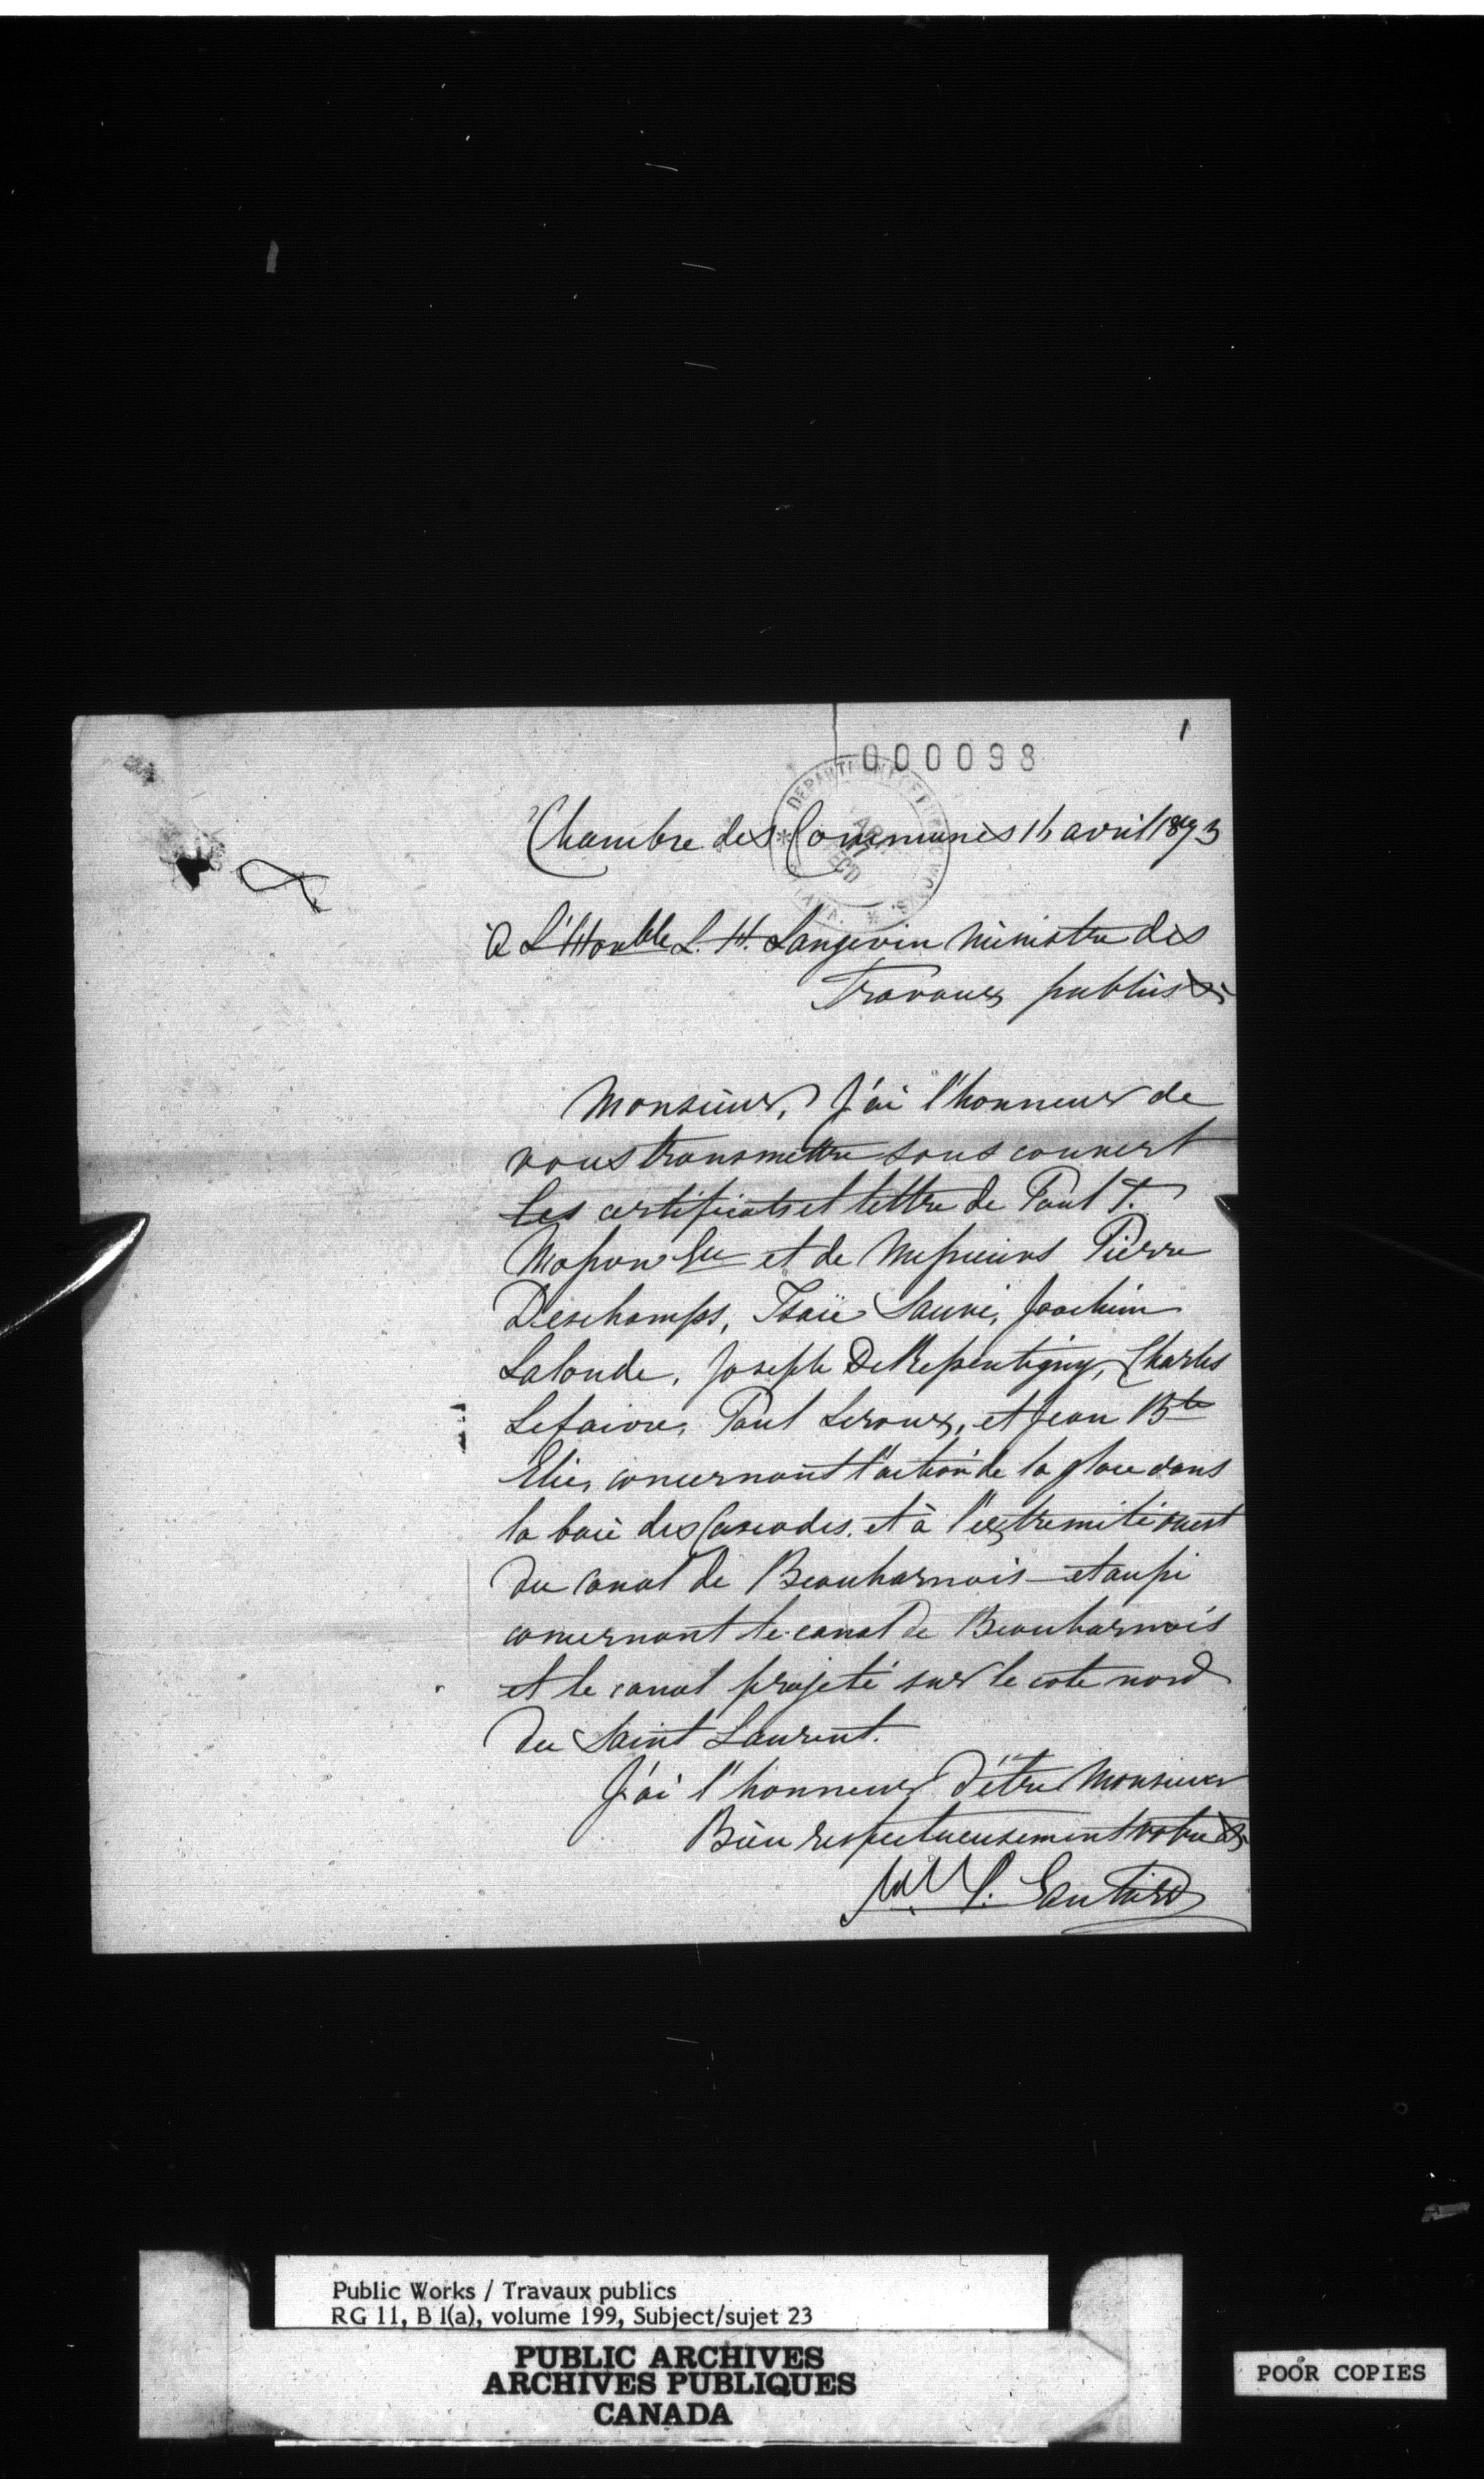 1
000098
Chambre des Communes 16 avril 1873
A L'Honble L. H. Langevin Ministre des
Travaux publics
Monsieur, J'ai l'honneur de
vous transmettre sous couvert
les certificats et lettre de Paul T.
Masson Eur et de Messieurs Pierre
Deschamps, Isaïe Sauvé, Joachim
Lalonde, Joseph DeRepentigny, Charles
Lefaivre, Paul Leroux, et Jean Bte
Elie, concernant l'action de la glace dans
la baie des Cascades, et à l'extremité ouest
du canal de Beauharnois et aussi
concernant le canal de Beauharnois
et le canal projeté sur le coté nord
du Saint Laurent.
J'ai l'honneur d'être Monsieur
Bien respectueusement votre &c
Public Works / Travaux publics
RG 11, B 1(a), volume 199, Subject/sujet 23
PUBLIC ARCHIVES
ARCHIVES PUBLIQUES
CANADA
POOR COPIES